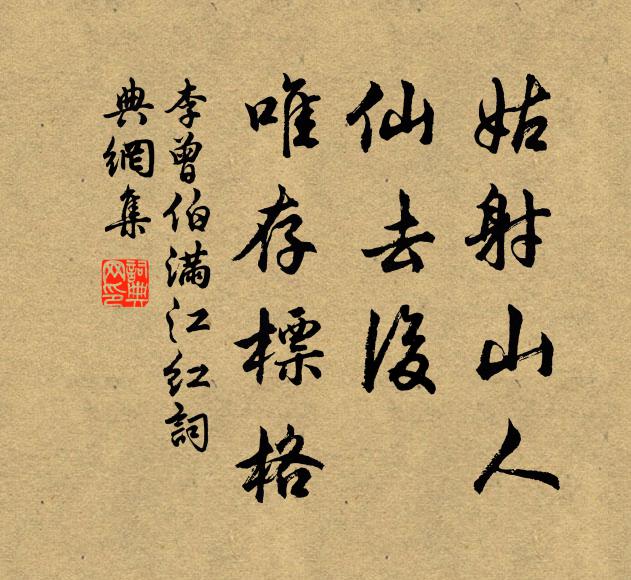 姑射山人
仙去後
唯存標格
李曾伯滿江紅詞
典網集
詞典網印